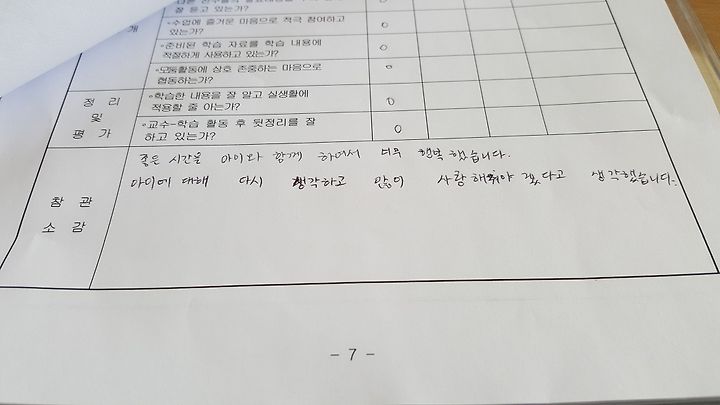 잘 듣고 있는가?
개
◦수업에 즐거운 마음으로 적극 참여하고
있는가?
◦준비된 학습 자료를 학습 내용에
적절하게 사용하고 있는가?
◦모둠활동에 상호 존중하는 마음으로
협동하는가?
정 리
및
평 가
◦학습한 내용을 잘 알고 실생활에
적용할 줄 아는가?
◦교수-학습 활동 후 뒷정리를 잘
하고 있는가?
참 관
소 감
좋은 시간을 아이와 함께 하여서 너무 행복했습니다.
아이에 대해 다시 생각하고 많이 사랑해줘야 겠다고 생각했습니다.
- 7 -